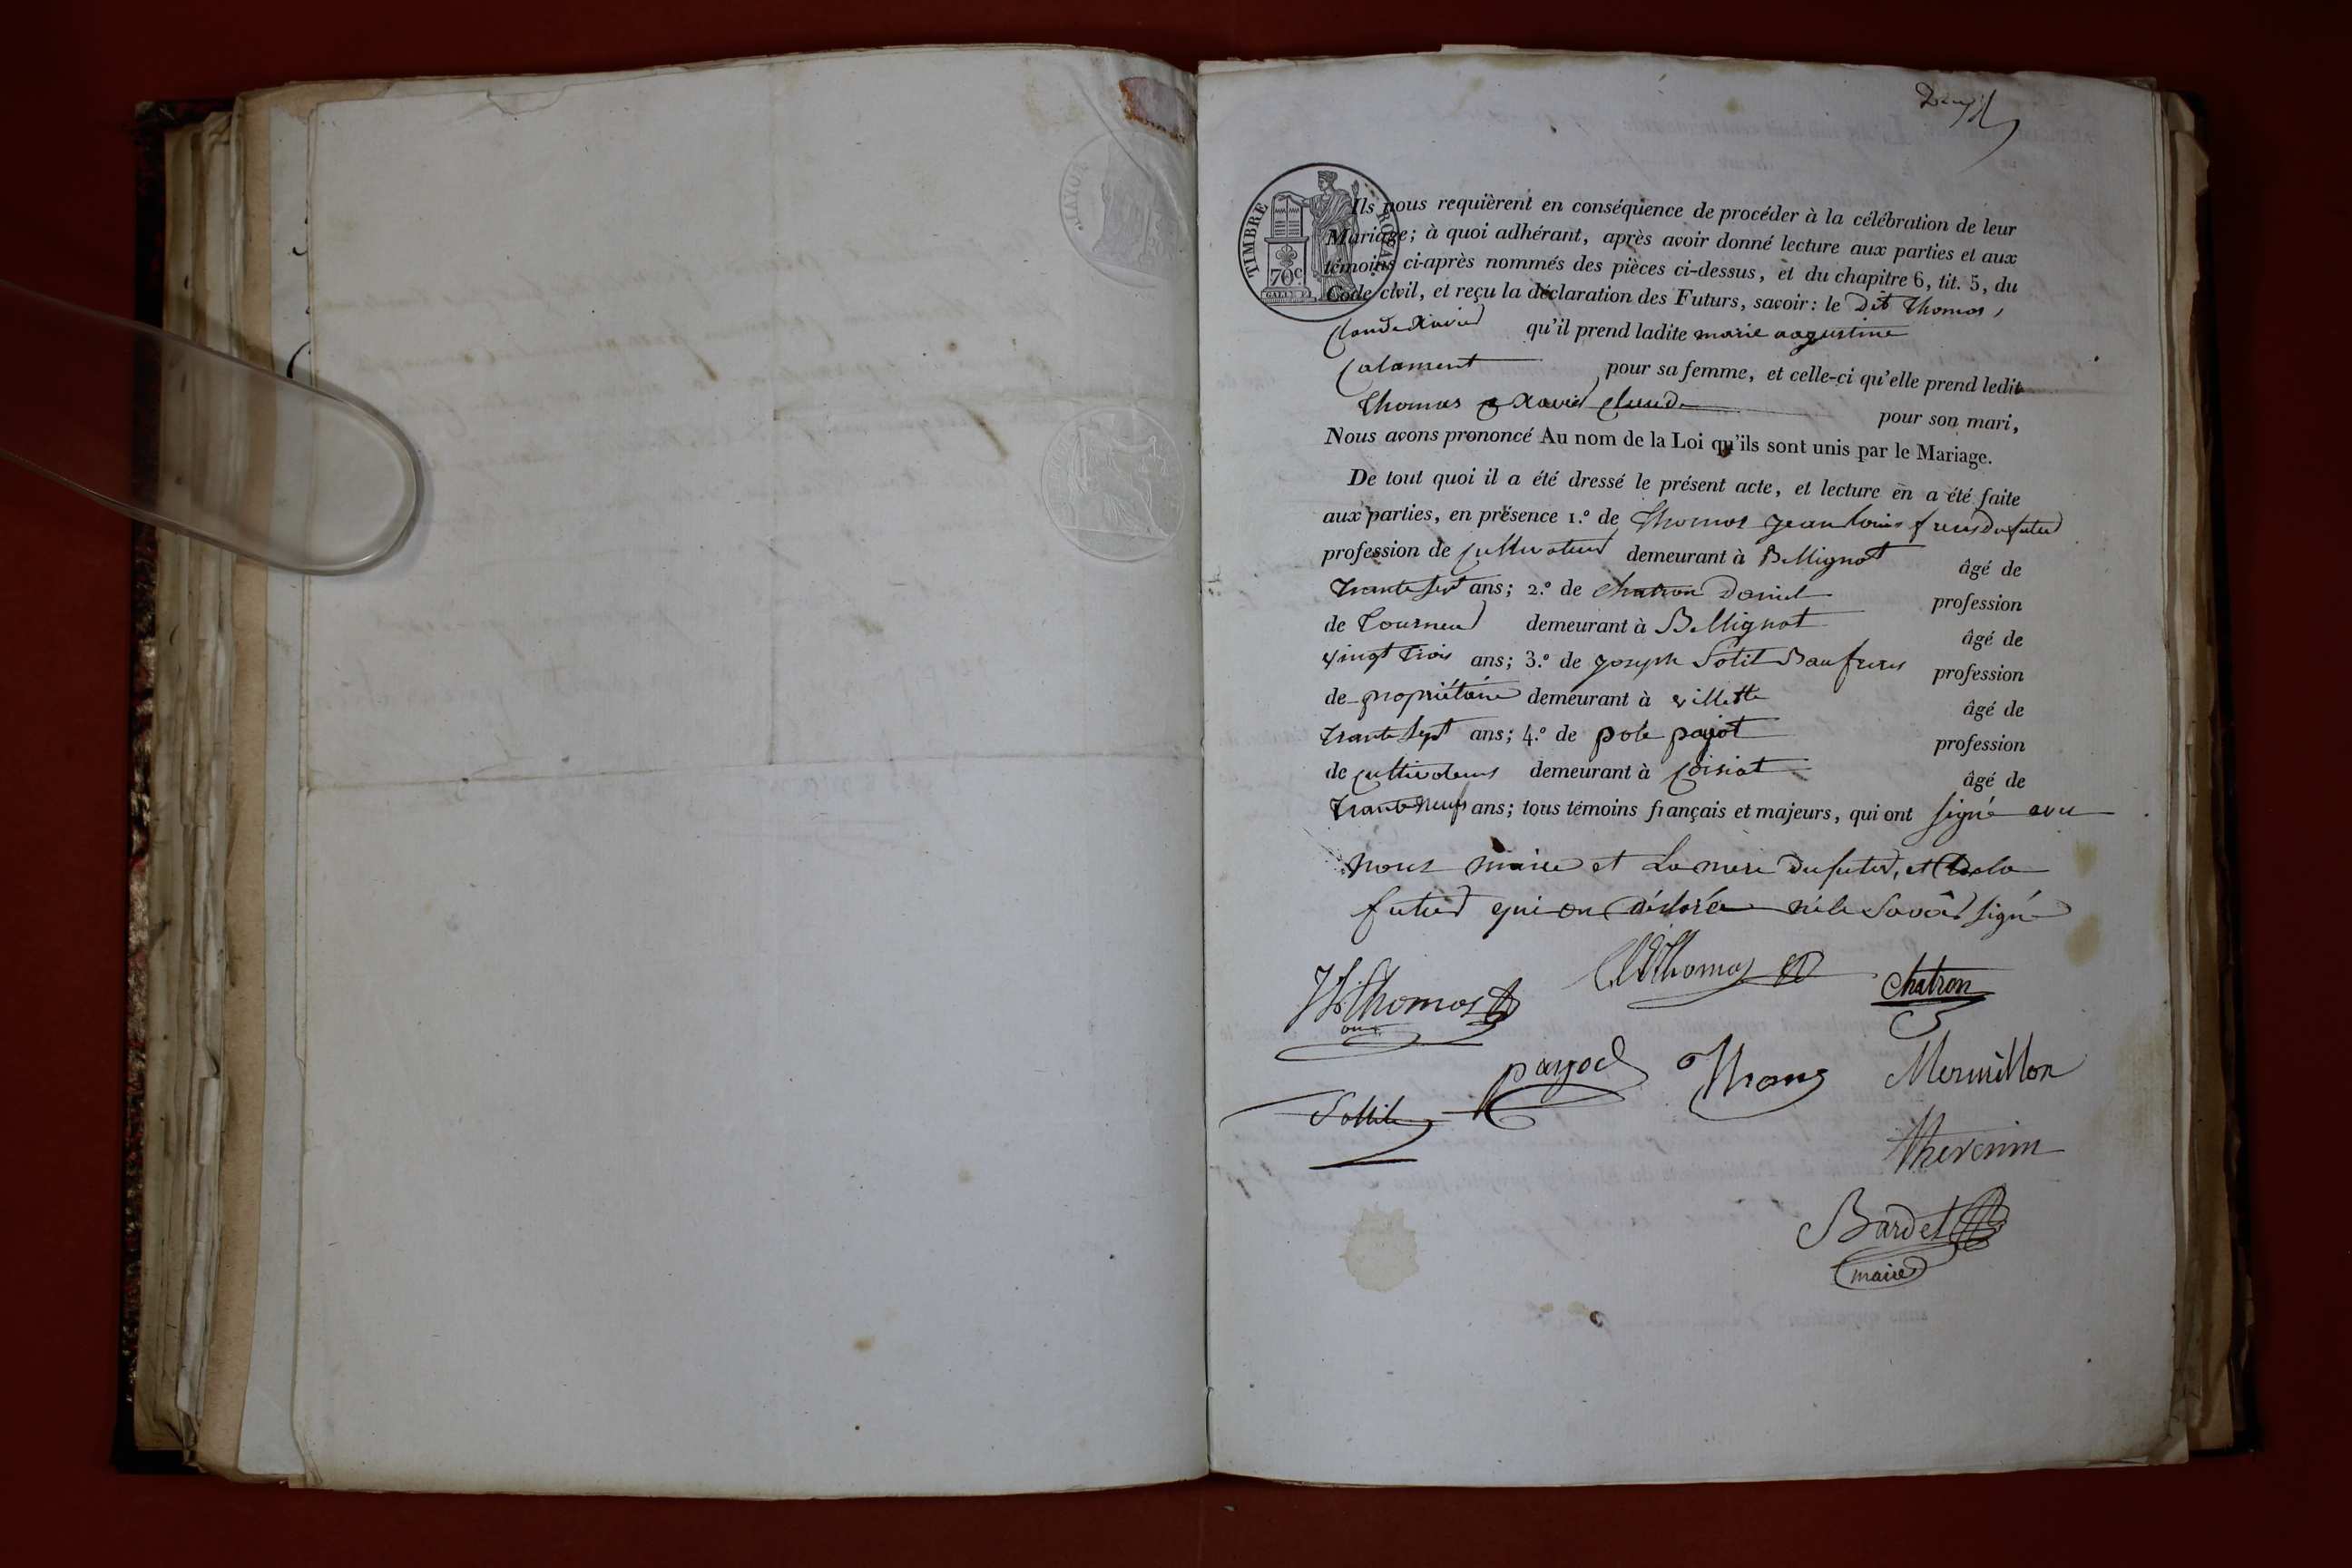 TIMBRE ROYAL
70c.
Ils nous requièrent en conséquence de procéder à la célébration de leur
Mariage; à quoi adhérant, après avoir donné lecture aux parties et aux
témoins ci-après nommés des pièces ci-dessus, et du chapitre 6, tit. 5, du
Code civil, et reçu la déclaration des Futurs, savoir: le Dit Thomas,
Claude Xavier qu'il prend ladite marie augustine
Calament pour sa femme, et celle-ci qu'elle prend ledit
Thomas Xavier Claude pour son mari,
Nous avons prononcé Au nom de la Loi qu'ils sont unis par le Mariage.
De tout quoi il a été dressé le présent acte, et lecture en a été faite
aux parties, en présence 1.º de Thomas jean louis frere du futur
profession de cultivateur demeurant à Bellignat âgé de
trante sept ans; 2.º de chatron Daniel profession
de Tourneur demeurant à Bellignat âgé de
vingt trois ans; 3.º de joseph Sotil Baufreres profession
de propriétaire demeurant à villette âgé de
trante sept ans; 4.º de pole payot profession
de cultivateurs demeurant à Coisiat âgé de
trante neuf ans; tous témoins français et majeurs, qui ont signé avec
nous maire et La mere du futur, et De la
futur qui on déclaré né le Savoir signé
JL Thomas CX Thomas chatron
payod Thomas Mermillon
Sottil
thevenin
Bardet
maire